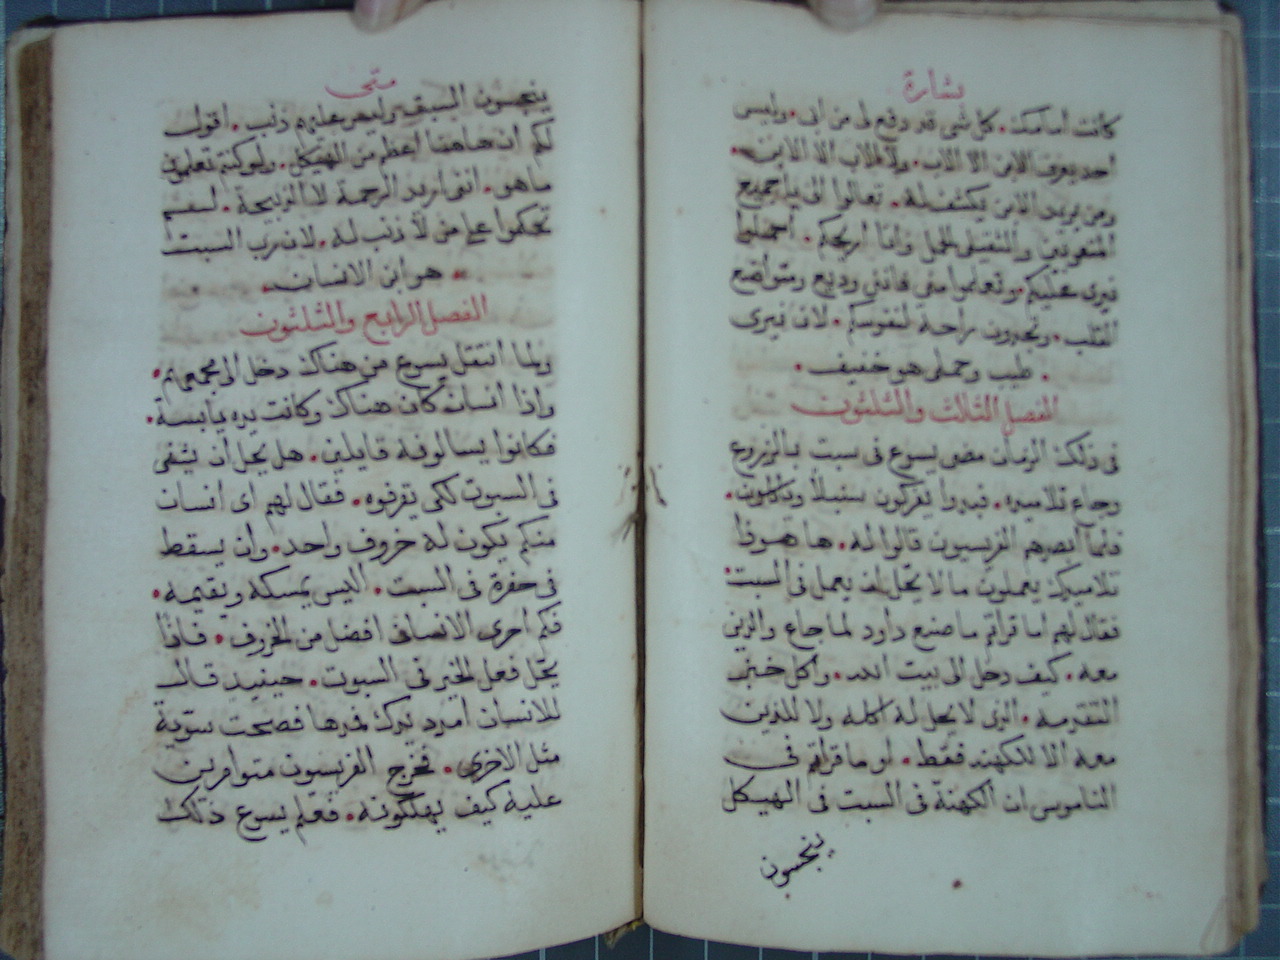 بشارة
كانت امامك. كل شى قد دفع لى من ابى. وليس
احد يعرف الابن الا الاب. ولا الاب الا الابن.
ومن يريد الابن يكشف له. تعالوا الى يا جميع
المتعوبين والثقيلى الحمل وانا اريحكم. احملوا
نيرى عليكم. وتعلموا منى فاننى وديع ومتواضع
القلب. وتجدون راحة لنفوسكم. لان نيرى
. طيب وحملى هو خفيف .
الفصل الثالث والثلثون
فى ذلك الزمان مضى يسوع فى سبت بالزروع
وجاع تلاميذه. فبدوا يفركون سنبلاً وياكلون.
فلما ابصرهم الفريسيون قالوا له. ها هوذا
تلاميذك يعملون ما لا يحل ان يعمل فى السبت.
فقال لهم اما قراتم ما صنع داود لما جاع والذين
معه. كيف دخل الى بيت الله. واكل خبز
التقدمة. الذى لا يحل له اكله ولا للذين
معه الا للكهنه فقط. او ما قراتم فى
الناموس ان الكهنة فى السبت فى الهيكل
ينجسون
متى
ينجسون السبت وليس عليهم ذنب. اقول
لكم ان هاهنا اعظم من الهيكل. ولو كنتم تعلمون
ما هو. اننى اريد الرحمة لا الذبيحة. لستم
تحكموا على من لا ذنب له. لان رب السبت
. هو ابن الانسان.
الفصل الرابع والثلثون
ولما انتقل يسوع من هناك دخل الى مجمعهم.
واذا انسان كان هناك وكانت يده يابسة.
فكانوا يسالونه قايلين. هل يحل ان يشفى
فى السبوت لكى يقرفوه. فقال لهم اى انسان
منكم يكون له خروف واحد. وان يسقط
فى حفرة فى السبت. اليس يمسكه ويقيمه.
فكم احرى الانسان افضل من الخروف. فاذاً
يحل فعل الخير فى السبوت. حينيذ قال
للانسان امدد يدك فمدها فصحت سوية
مثل الاخرى. فخرج الفريسيون متوامرين
عليه كيف يهلكونه. فعلم يسوع ذلك